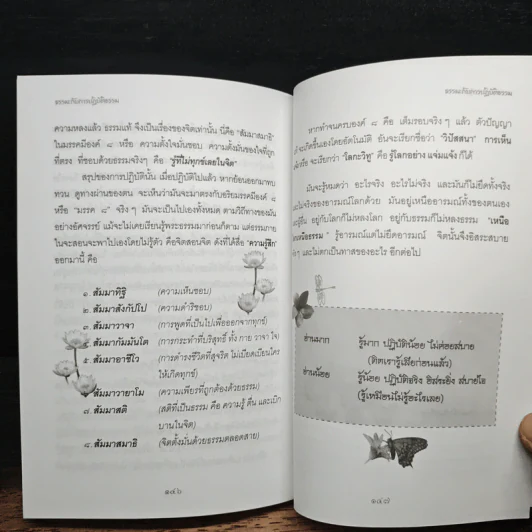 ธรรมะกับการปฏิบัติธรรม
ความหลงแล้ว ธรรมแท้ จึงเป็นเรื่องของจิตเท่านั้น นี่คือ "สัมมาสมาธิ"
ในมรรคมีองค์ ๘ หรือ ความตั้งใจมั่นชอบ ความตั้งมั่นของใจที่ถูก
ที่ตรง ที่ชอบด้วยธรรมจริงๆ คือ "รู้ที่ไม่ทุกข์เลยในจิต"
สรุปของการปฏิบัตินั้น เมื่อปฏิบัติไปแล้ว หากย้อนออกมาทบ
ทวน ดูทางผ่านของตน จะเห็นว่ามันจะมาตรงกับอริยมรรคมีองค์ ๘
หรือ "มรรค ๘" จริงๆ มันจะเป็นไปเองทั้งหมด ตามวิถีทางของมัน
อย่างอัศจรรย์ แม้จะไม่เคยเรียนรู้พระธรรมมาก่อนก็ตาม แต่ธรรมภาย
ในจะสอนจะพาไปเองโดยไม่รู้ตัว คือจิตสอนจิต ดังที่ได้สื่อ "ความรู้สึก"
ออกมานี้ คือ
๑. สัมมาทิฐิ (ความเห็นชอบ)
๒. สัมมาสังกัปโป (ความดำริชอบ)
๓. สัมมาวาจา (การพูดที่เป็นไปเพื่อออกจากทุกข์)
๔. สัมมากัมมันโต (การกระทำที่บริสุทธิ์ ทั้ง กาย วาจา ใจ)
๕. สัมมาอาชีโว (การดำรงชีวิตที่สุจริต ไม่เบียดเบียนใคร
ให้เกิดทุกข์)
สัมมาวายาโม (ความเพียรที่ถูกต้องด้วยธรรม)
สัมมาสติ (สติที่เป็นธรรม คือ ความรู้ ตื่น และเบิก
บานในจิต)
๘. สัมมาสมาธิ (จิตตั้งมั่นด้วยธรรมตลอดสาย)
๑๔๖
ธรรมะกับการปฏิบัติธรรม
หากทำจนครบองค์ ๘ คือ เต็มรอบจริงๆ แล้ว ตัวปัญญา
จะเกิดขึ้นเองโดยอัตโนมัติ อันจะเรียกชื่อว่า "วิปัสสนา" การเห็น
แจ้ง หรือ จะเรียกว่า "โลกะวิทู" คือ รู้โลกอย่าง แจ่มแจ้ง ก็ได้
มันจะรู้หมดว่า อะไรจริง อะไรไม่จริง และมันก็ไม่ยึดทั้งจริง
และไม่จริงของอารมณ์โลกด้วย มันอยู่เหนืออารมณ์ทั้งของตนเอง
และผู้อื่น อยู่กับโลกก็ไม่หลงโลก อยู่กับธรรมก็ไม่หลงธรรม "เหนือ
เหนือธรรม" รู้อารมณ์แต่ไม่ยึดอารมณ์ จิตนั้นจึงอิสระสบาย
จริงๆ และไม่ตกเป็นทาสของอะไร อีกต่อไป
อ่านมาก รู้มาก ปฏิบัติน้อย ไม่ค่อยสบาย
(ติดเรารู้เสียก่อนแล้ว)
อ่านน้อย รู้น้อย ปฏิบัติจริง อิสระยิ่ง สบายใจ
(รู้เหมือนไม่รู้อะไรเลย)
๑๔๗